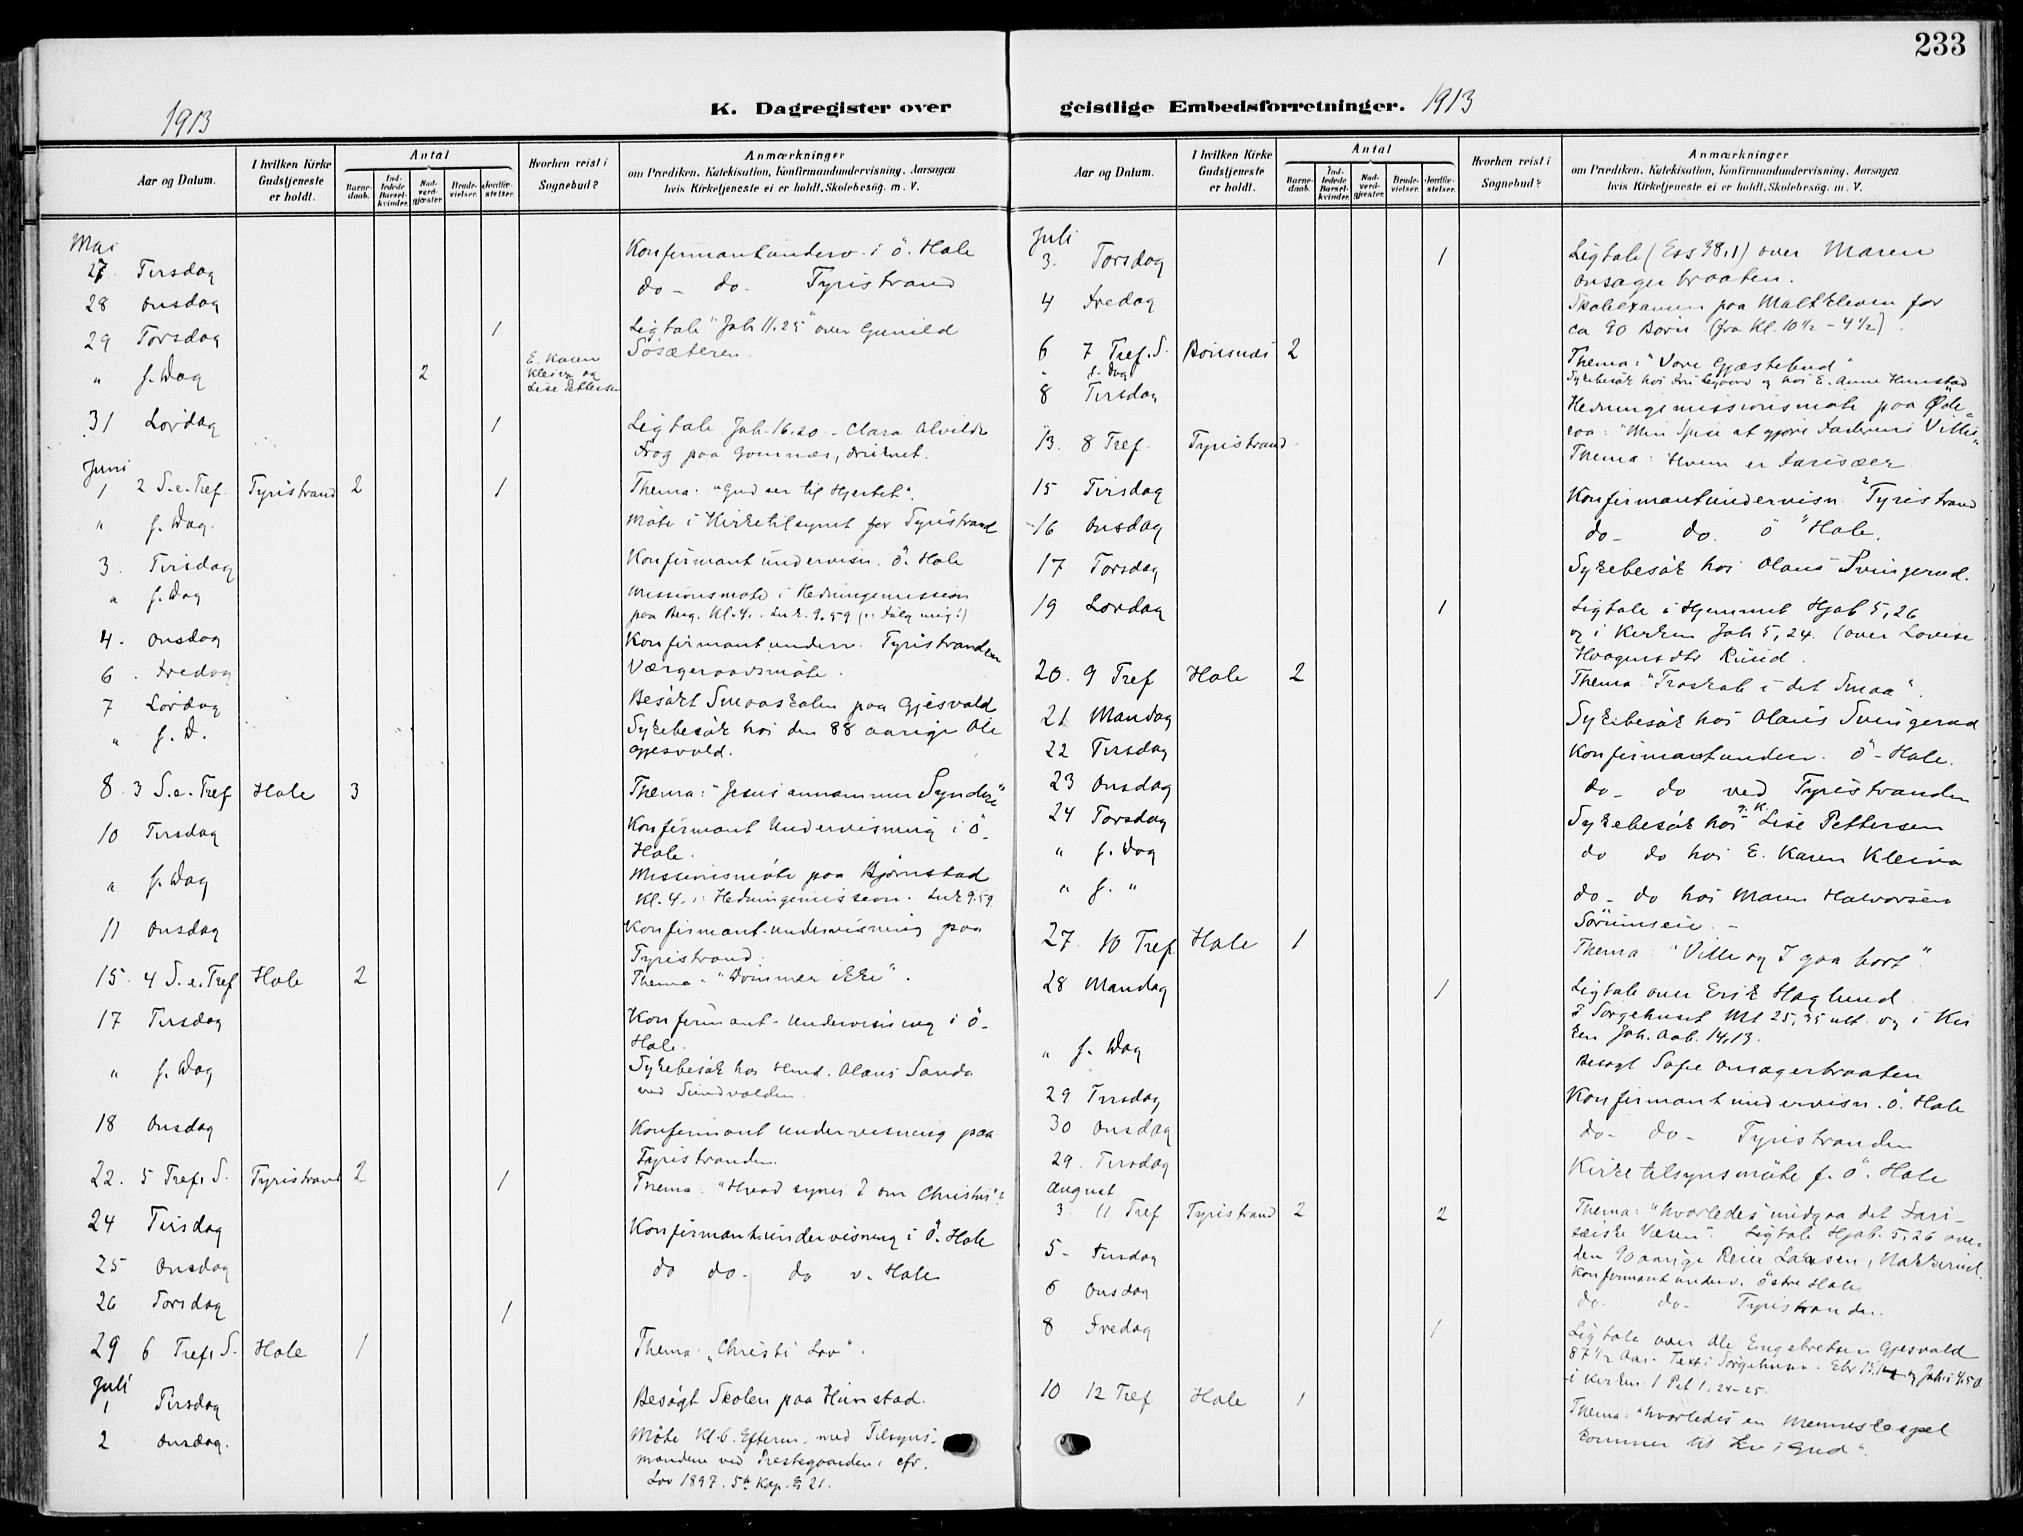 233
1913
K. Dagregister over
geistlige Embedsforretninger. 1913
Aar og Datum.
I hvilken Kirke Gudstjeneste er holdt.
Antal
Barnedaab.
Indledede Barselkvinder.
Nadverdgjæster.
Brudevielser.
Jordfæstelser.
Hvorhen reist i Sognebud?
Anmærkninger
om Prædiken, Katekisation, Konfirmandundervisning, Aarsagen
hvis Kirketjeneste ei er holdt, Skolebesög. m. V.
Mai
27. Tirsdag Konfirmantunderv. i Ö. Hole
28 Onsdag do - do - Tyristrand
29 Torsdag 1 Ligtale "Joh 11.25" over Gunild
Sösæteren.
" s. Dag 2 E. Karen
Kleiva og
Lise Pettersen
31 Lördag 1 Ligtale Joh. 16.20 - Clara Alvilde
Frog paa Gomnæs, druknet.
Juni
1 2 S. e. Tref. Tyristrand 2 1 Thema: "Gud ser til Hjertet".
" s. Dag. Möte i Kirketilsynet for Tyristrand
3. Tirsdag Konfirmantundervisn. Ö. Hole
" s. Dag Missionsmöte i Hedningemission
paa Berg. Kl. 4. Luk. 9.59 (: Fölg mig!)
4. Onsdag Konfirmantunderv. Tyristranden
6. Fredag Værgeraadsmöte.
7 Lördag Besökt Smaaskolen paa Gjesvald
" s. D. Sykebesök hos den 88 aarige Ole
Gjesvald.
8. 3 S. e. Tref Hole 3 Thema: "Jesus annammer Syndere"
10 Tirsdag Konfirmant Undervisning i Ö.
Hole.
" s. Dag Missionsmöte paa Bjørnstad
Kl. 4. i Hedningemission. Luk 9.59
11 Onsdag Konfirmant-undervisning paa
Tyristrand.
15. 4 S. e. Tref Hole 2 Thema: "Dömmer ikke".
17 Tirsdag Konfirmant-Undervisning i Ö.
Hole.
" s. Dag Sykebesök hos Hmd. Olaus Sanda
ved Sundvolden.
18 Onsdag Konfirmant Undervisning paa
Tyristranden.
22. 5 Tref. S. Tyristrand 2 1 Thema: "Hvad synes I om Christus"?
24 Tirsdag Konfirmantundervisning i Ö. Hole
25 Onsdag do do - do v. Hole
26 Torsdag 1
29 6 Tref. S. Hole 1 Thema: "Christi Lov".
Juli
1 Tirsdag Besögt Skolen paa Hunstad.
2 Onsdag. Möte Kl. 6. Efterm. med Tilsyns-
mændene ved Prestegaarden, cfr.
Lov 1897. 5te Kap. § 21.
Aar og Datum.
I hvilken Kirke Gudstjeneste er holdt.
Antal
Barnedaab.
Indledede Barselkvinder.
Nadverdgjæster.
Brudevielser.
Jordfæstelser.
Hvorhen reist i Sognebud?
Anmærkninger
om Prædiken, Katekisation, Konfirmandundervisning, Aarsagen
hvis Kirketjeneste ei er holdt, Skolebesög. m. V.
Juli
3. Torsdag 1 Ligtale (Ess 38,1) over Maren
Onsagerbraaten.
4 Fredag Skoleexamen paa Maltkleven for
ca 90 Børn (fra Kl. 10½ - 4½).
6 7 Tref. S. Bönsnæs 2 Thema: "Vore Gjæstebud"
" s. Dag Sykebesök hos og hos E. Anne Hunstad
8 Tirsdag Hedningemissionsmöte paa Øde-
: "Min Spise at gjöre Faderens Villie"
13. 8 Tref. Tyristrand Thema: Hvem er Farisæer
15 Tirsdag Konfirmantundervisn. Tyristrand
16 Onsdag do - do. Ö Hole.
17 Torsdag Sykebesök hos Olaus Svingerud.
19 Lördag 1 Ligtale i Hjemmet Hjob 5,26
og i Kirken Joh 5,24. (over Lovise
Haagensdtr Ruud.
20. 9 Tref Hole 2 Thema: "Troskab i det Smaa".
21 Mandag Sykebesök hos Olaus Svingerud
22 Tirsdag Konfirmantunderv. Ö. Hole.
23 Onsdag do - do ved Tyristranden
24 Torsdag Sykebesök hos g. K. Lise Pettersen
" s. Dag do do hos E. Karen Kleiva
" s. " do - do hos Maren Halvorsen
Sörumseie. -
27. 10 Tref Hole 1 Thema: "Ville og I gaa bort".
28 Mandag 1 Ligtale over Erik Haglund.
I Sorgehuset Mt 25,35 ult. og i Kir
ken Joh. Aab. 14,13.
" s. Dag Besögt Sofie Onsagerbraaten
29 Tirsdag Konfirmantundervisn. Ö. Hole
30 Onsdag do - do - Tyristranden
29. Tirsdag Kirketilsynsmöte f. Ö. Hole
August
3. 11 Tref Tyristrand 2 2 Thema: "Hvorledes undgaa det Fari-
sæiske Væsen". Ligtale Hjob. 5,26 over
den 90 aarige Reier Larsen, Nakkerud.
5 - Tirsdag Konfirmantunderv. Östre Hole
6 Onsdag do - do - Tyristranden.
8 Fredag 1 Ligtale over Ole Engebretsen Gjesvald
87½ Aar. Text i Sorgehuset. Ebr 13.14 og Joh. 4.50
i Kirken 1 Pet 1, 24-25.
10 12 Tref Hole 1 Thema: "Hvorledes en Menneskesjæl
kommer til Liv i Gud".